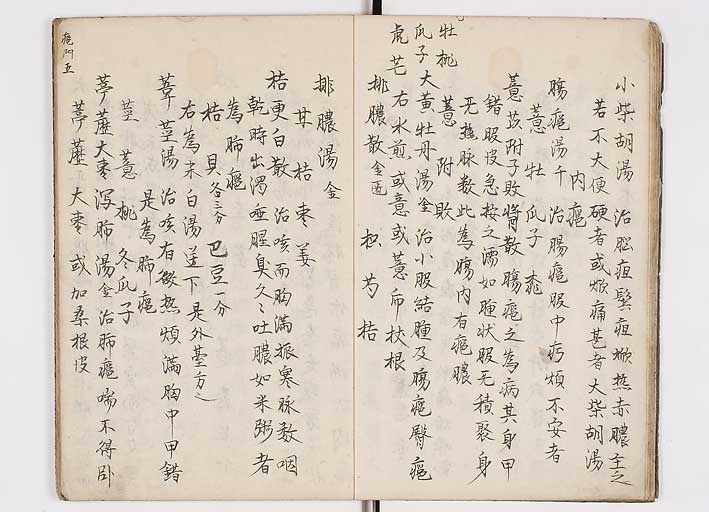 小柴胡湯 治脳疽鬢疽焮熱赤膿主之
若不大便硬者或焮痛甚者大柴胡湯
内癰
腸癰湯千 治腸癰腹中㽲煩不安者
薏 牡 瓜子 桃
薏苡附子敗醤散 腸癰之為病其身甲
錯腹皮急按之濡如腫状腹无積聚身
无熱脉数此為腸内有癰膿
薏 附 敗
牡 桃
瓜子大黄牡丹湯金 治小腹結腫及腸癰臀癰
虎 芒 右水煎或意或薏
排膿散金匱 枳 芍 桔
排膿湯金
甘 桔 棗 姜
桔更白散 治咳而胸満振寒脉数咽
乾時出濁唾腥臭久〻吐膿如米粥者
為肺癰
桔 貝各三分 巴豆一分
右為末白湯送下是外䑓方之
葦茎湯 治咳有微熱煩満胸中甲錯
是為肺癰
茎 薏 桃 冬瓜子
葶藶大棗瀉肺湯金 治肺癰喘不得卧
葶藶 大棗 或加桑根皮
癰門 五